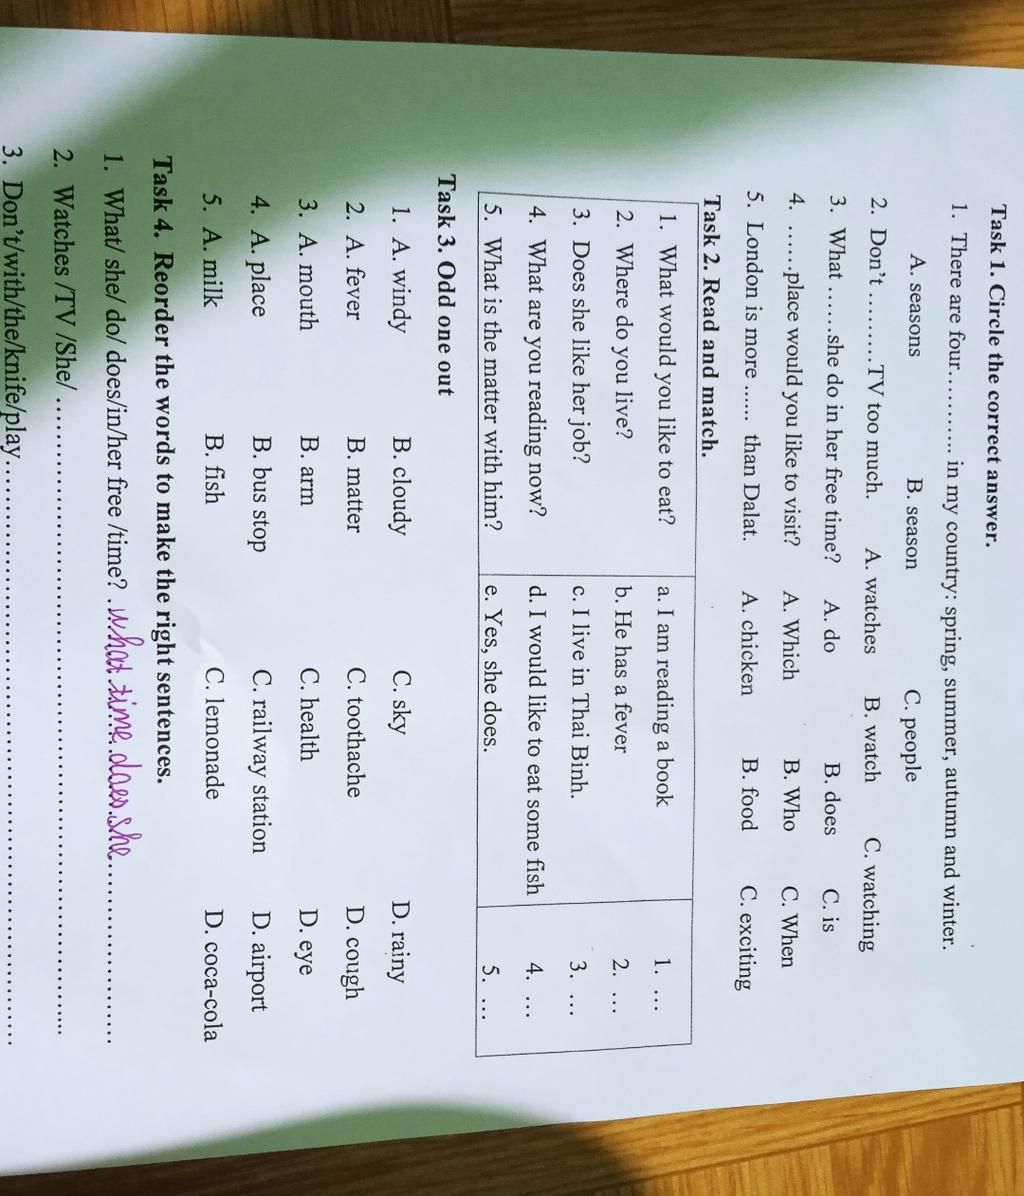 Task 1. Circle the correct answer.
1. There are four............ in my country: spring, summer, autumn and winter.
A. seasons B. season C. people
2. Don't ..........TV too much. A. watches B. watch C. watching
3. What .......she do in her free time? A. do B. does C. is
4. ......place would you like to visit? A. Which B. Who C. When
5. London is more ...... than Dalat. A. chicken B. food C. exciting
Task 2. Read and match.
1. What would you like to eat? a. I am reading a book 1. ...
2. Where do you live? b. He has a fever 2. ...
3. Does she like her job? c. I live in Thai Binh. 3. ...
4. What are you reading now? d. I would like to eat some fish 4. ...
5. What is the matter with him? e. Yes, she does. 5. ...
Task 3. Odd one out
1. A. windy B. cloudy C. sky D. rainy
2. A. fever B. matter C. toothache D. cough
3. A. mouth B. arm C. health D. eye
4. A. place B. bus stop C. railway station D. airport
5. A. milk B. fish C. lemonade D. coca-cola
Task 4. Reorder the words to make the right sentences.
1. What/ she/ do/ does/in/her free /time? what time does she
2. Watches /TV /She/ ..........................................................
3. Don't/with/the/knife/play..........................................................